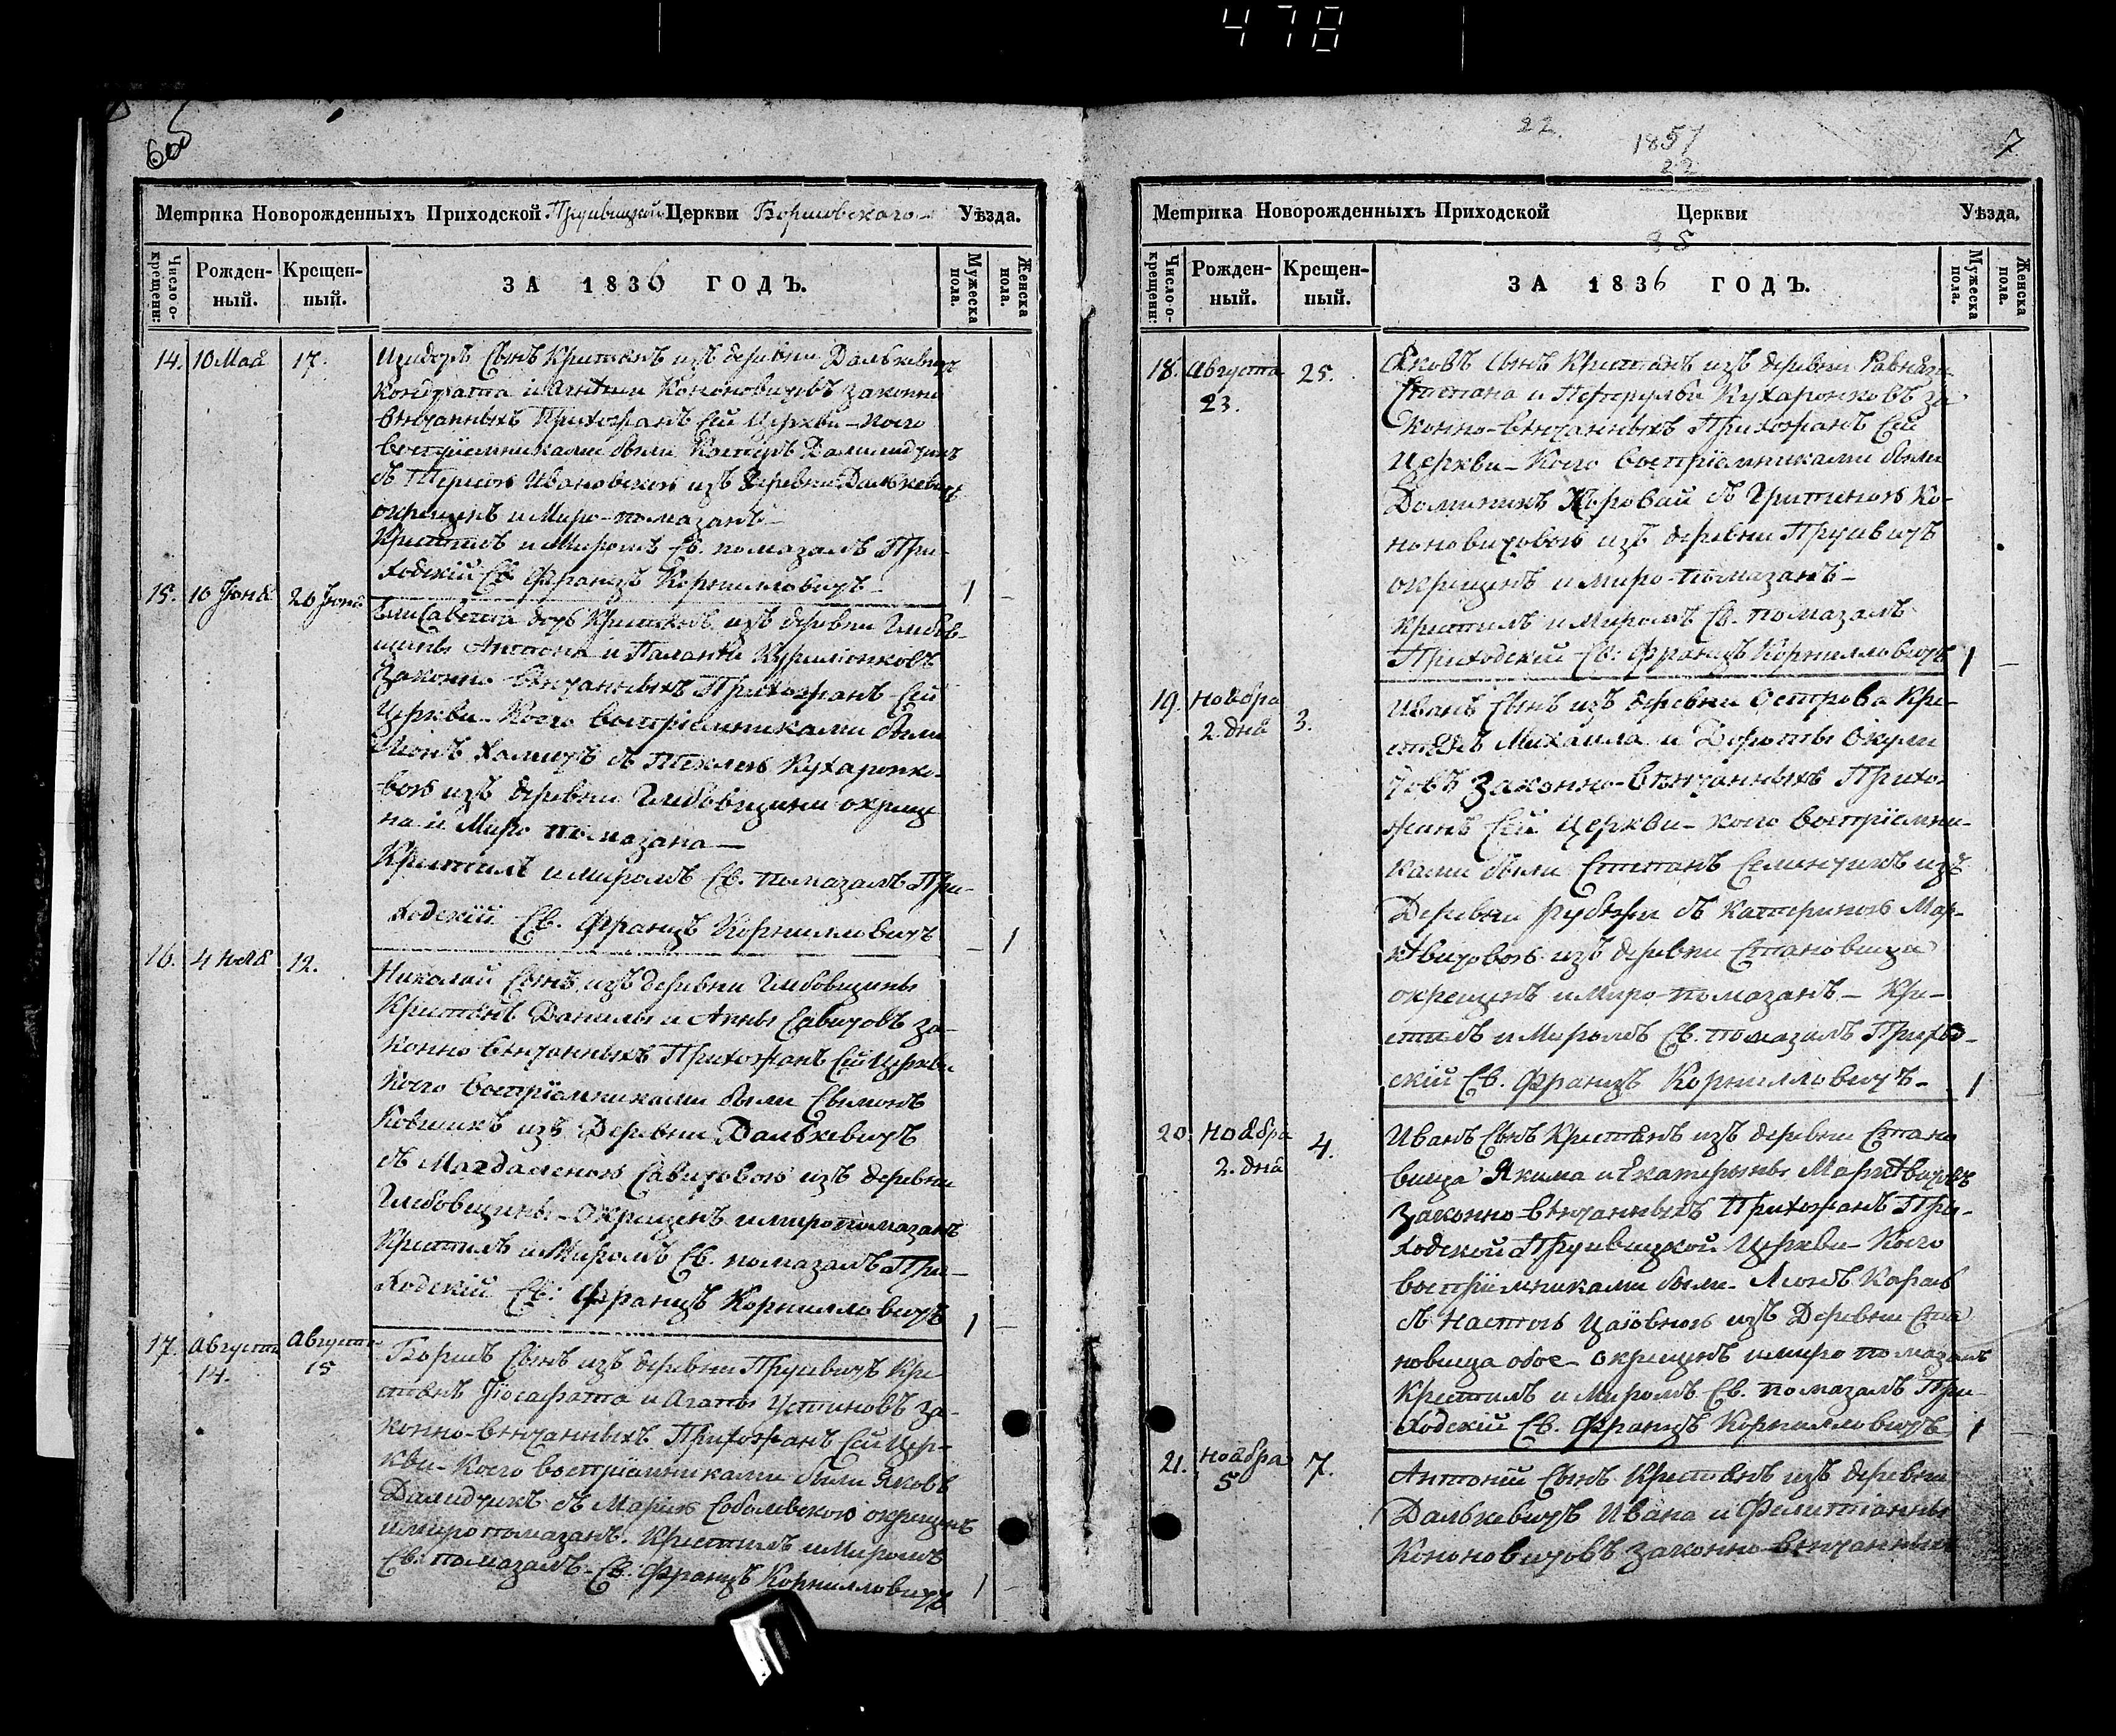 478
600
Метрика Новорожденныхъ Приходской Прусевицкой Церкви Борисовскаго Уѣзда.
Число о-крещен: Рожден-ный. Крещен-ный. ЗА 1836 ГОДЪ. Мужеска пола. Женска пола.
14. 10 Мая 17. Изидоръ сынъ Крестянъ изъ деревни Далькевичъ
Кондрата и Агафіи Кононовичовъ законно
Вѣнчанныхъ Прихожанъ Сей Церкви – Коего
воспріемниками были
съ Ивановскою изъ Деревни Далькевичъ
окрещенъ и Миро-помазанъ –
Крестилъ и Миромъ Св. помазалъ При-
ходскій Св. Францъ Корнилловичъ – 1 –
15. 10 Іюня 20 Іюня Елисавета дочь Крестянъ изъ деревни Глебов-
щины Антона и Паланеи Курилюнковъ
Законно Вѣнчанныхъ Прихожанъ Сей
Церкви – Коего воспріемниками были
съ Теклею Кухаронко-
вою изъ деревни Глебовщины окреще
на и Миро помазана —
Крестилъ и миромъ Св. помазалъ При-
ходскій Св. Францъ Корнилловичъ – 1
16. 4 12. Николай Сынъ изъ деревни Глебовщины
Крестянъ Данилы и Анны Савичовъ за-
конно Вѣнчанныхъ Прихожанъ Сей Церкви
Коего воспріемниками были Сымонъ
Ковшикъ изъ Деревни Далькевичъ
съ Магдаленою Савичовою изъ деревни
Глебовщины – Окрещенъ и миропомазанъ
Крестилъ и Миромъ Св. помазалъ При-
ходскій Св: Францъ Корнилловичъ 1 –
17. Августа 14. Августа 15 Борисъ Сынъ изъ деревни Прусевичъ Кре
стянъ Іосафата и Агапы Устиновъ за-
конно-вѣнчанныхъ Прихожанъ Сей Цер-
кви – Коего воспріемниками были Яковъ
Далидчикъ съ Маріею Соболевскою окрещенъ
и миро помазанъ. Крестилъ и Миромъ
Св. помазалъ – Св. Францъ Корнилловичъ 1 –
22
1857
22
7
Метрика Новорожденныхъ Приходской Церкви Уѣзда.
Число о-крещен: Рожден-ный. Крещен-ный. ЗА 1836 ГОДЪ. Мужеска пола. Женска пола.
18. Августа 23. 25. Яковъ Сынъ Крестянъ изъ деревни
Степана и Петрунели Кухаронковъ за
Конно-вѣнчанныхъ Прихожанъ Сей
Церкви – Коего воспріемниками были
Доминикъ Коровай съ Ко-
ноновичовою изъ деревни Прусевичъ
окрещенъ и миро-помазанъ –
Крестилъ и Миромъ Св. помазалъ
Приходскій Св: Францъ Корнилловичъ 1 –
19. Ноября 2. дня 3. Иванъ Сынъ изъ деревни Острова Кре-
стянъ Михаила и Дороты Окули
човъ Законно-вѣнчанныхъ Прихо-
жанъ Сей Церкви – коего воспріемни-
ками были Степанъ Семинчикъ изъ
Деревни съ Катериною Мар-
кевичовою изъ деревни Становища
окрещенъ и Миро-помазанъ – Кре-
стилъ и Миромъ Св. помазалъ Приход-
скій Св. Францъ Корнилловичъ – 1
20 Ноября 2. дня 4. Иванъ Сынъ Крестянъ изъ деревни Стано
вища Якима и Екатерыны Маркевичовъ
Законно-вѣнчанныхъ Прихожанъ При-
ходской Прусевицкой Церкви – Коего
воспріемниками были – Леонъ Карась
съ Настою изъ Деревни Ста
новища обое – окрещенъ и миро помазанъ
Крестилъ и Миромъ Св. помазалъ При-
ходскій Св. Францъ Корнилловичъ 1 –
21. Ноября 5 7. Антоній Сынъ Крестянъ изъ деревни
Далькевичъ Ивана и Фелитіанны
Кононовичовъ законно-вѣнчанныхъ